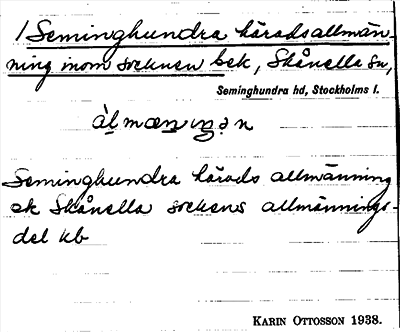 / Seminghundra häradsallmän-
ning inom socknen bek, Skånella sn,
Seminghundra hd, Stockholms l.
àlmæniŋən
Seminghundra härads allmänning
ek Skånella sockens allmännings-
del kb
KARIN OTTOSSON 1938.